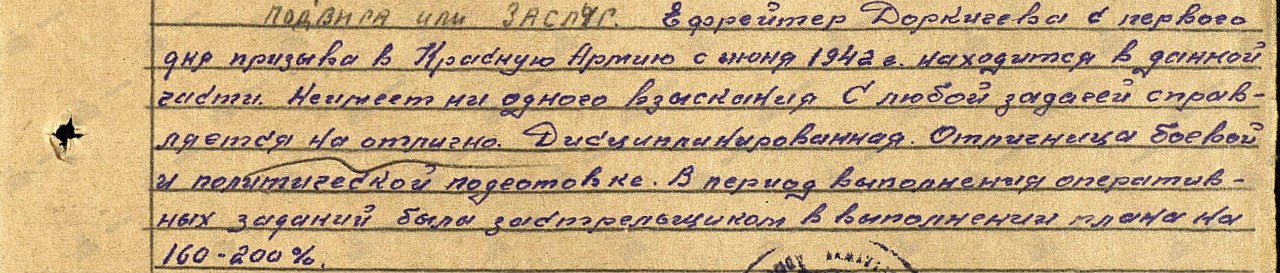 подвига или заслуг. Ефрейтер Доркичева с первого
дня призыва в Красную Армию с июня 1942 г. находится в данной
части. Неимеет ни одного взыскания С любой задачей справ-
ляется на отлично. Дисциплинированная. Отличница боевой
и политической подготовке. В период выполнения оператив-
ных заданий была застрельщиком в выполнении плана на
160-200%.